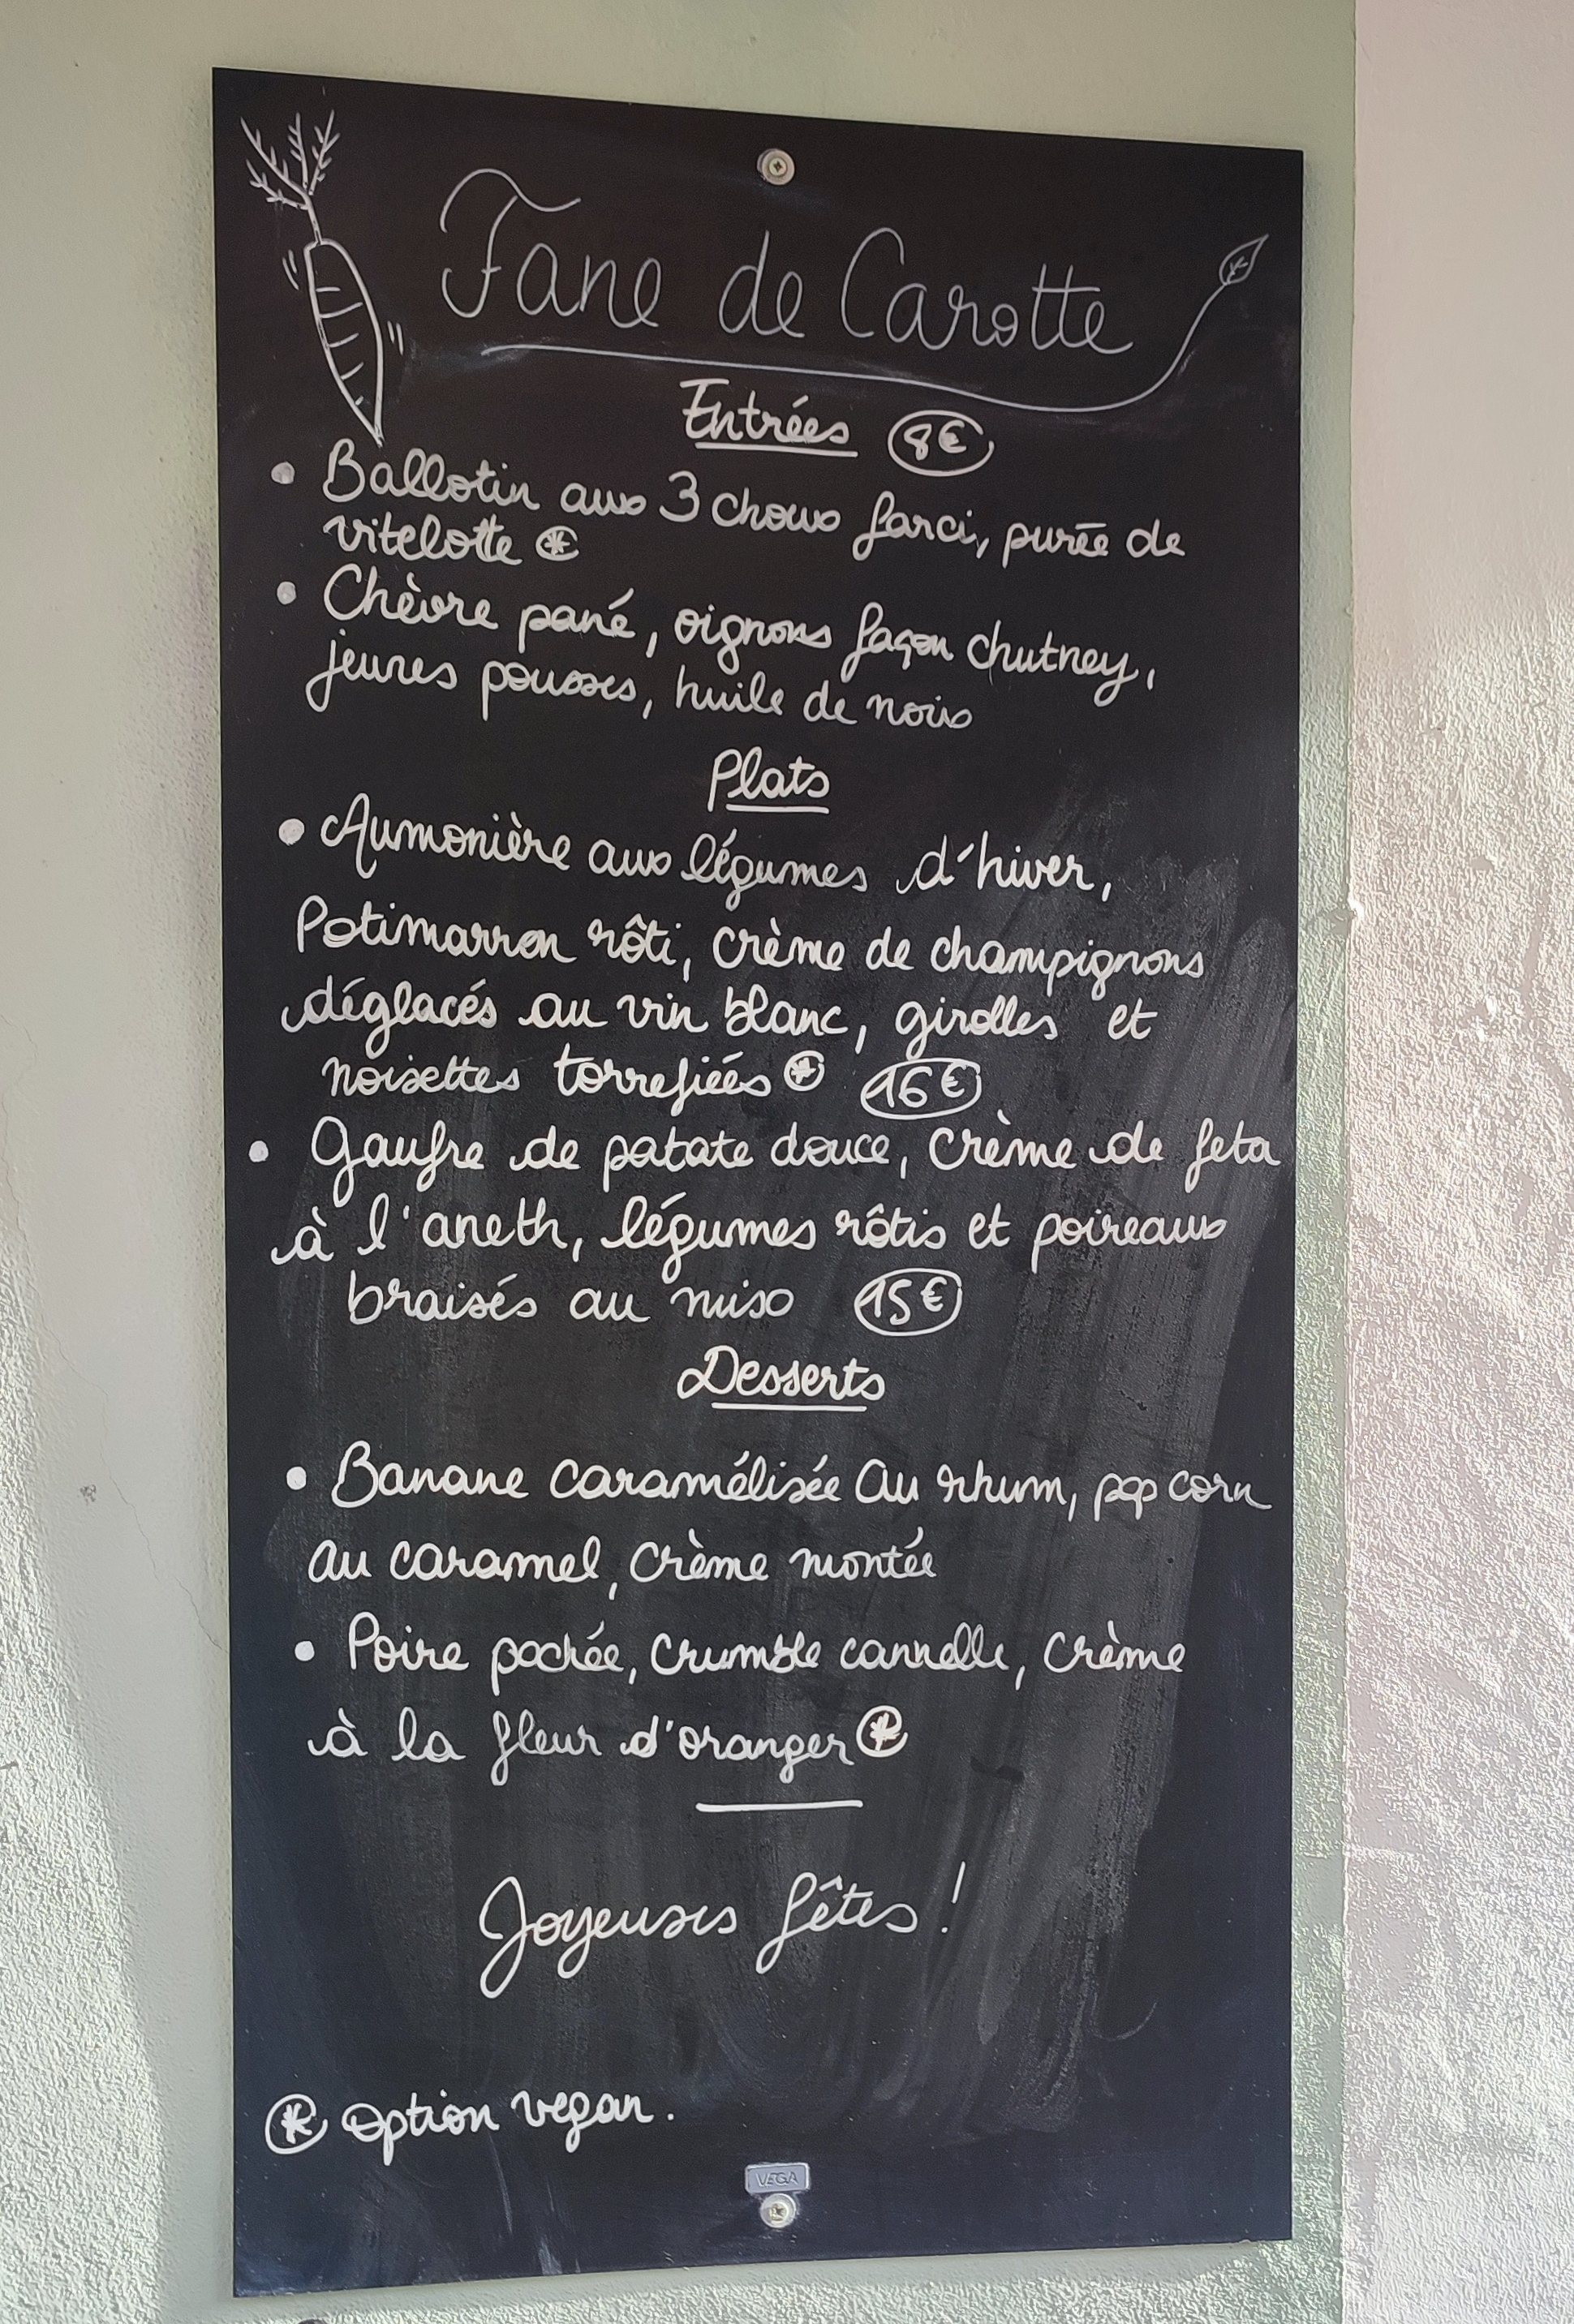 Fane de Carotte
Entrées 8€
• Ballotin aux 3 choux farci, purée de
vitelotte *
• Chèvre pané, oignons façon chutney,
jeunes pousses, huile de noix
Plats
• Aumonière aux légumes d'hiver,
Potimarron rôti, crème de champignons
déglacés au vin blanc, girolles et
noisettes torrefiées * 16€
• Gaufre de patate douce, crème de feta
à l'aneth, légumes rôtis et poireaux
braisés au miso 15€
Desserts
• Banane caramélisée au rhum, pop corn
au caramel, crème montée
• Poire pochée, crumble cannelle, crème
à la fleur d'oranger *
Joyeuses fêtes !
* Option vegan.
VEGA